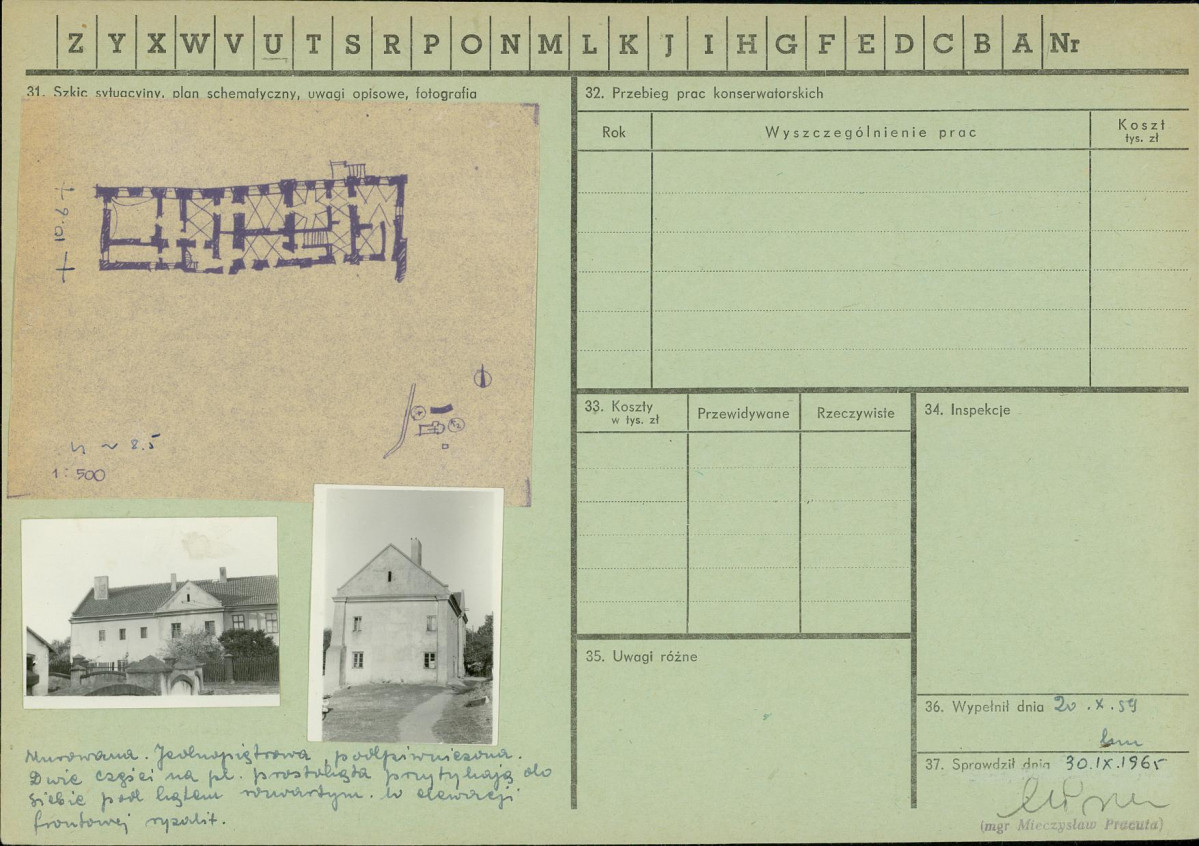 Z Y X W V U T S R P O N M L K J I H G F E D C B A Nr
31. Szkic sytuacyjny, plan schematyczny, uwagi opisowe, fotografia
10.6
h ~ 8.5
1:500
Murowana. Jednopiętrowa, podpiwniczona.
Dwie części na pl. prostokąta przytykają do
siebie pod kątem rozwartym. W elewacji
frontowej ryzalit.
32. Przebieg prac konserwatorskich
Rok
Wyszczególnienie prac
Koszt
tys. zł
33. Koszty
w tys. zł
Przewidywane
Rzeczywiste
34. Inspekcje
35. Uwagi różne
36. Wypełnił dnia 20.X.59
37. Sprawdził dnia 30.IX.1965
(mgr Mieczysław Pracuta)